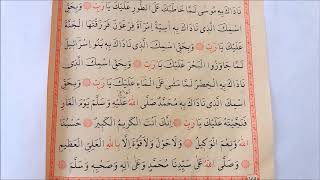 نَادَاكَ بِهِ مُوسَى لَمَّا خَاطَبَكَ عَلَى الطُّورِ عَلَيْكَ يَا رَبِّ ۞ وَبِحَقِّ
اسْمِكَ الَّذِي نَادَاكَ بِهِ آسِيَةُ امْرَأَةُ فِرْعَوْنَ فَرَزَقْتَهَا الْجَنَّةَ
عَلَيْكَ يَا رَبِّ ۞ وَبِحَقِّ اسْمِكَ الَّذِي نَادَاكَ بِهِ بَنُو إِسْرَائِيلَ
لَمَّا جَاوَزُوا الْبَحْرَ عَلَيْكَ يَا رَبِّ ۞ وَبِحَقِّ اسْمِكَ
الَّذِي نَادَاكَ بِهِ الْخَضِرُ لَمَّا مَشَى عَلَى الْمَاءِ عَلَيْكَ يَا رَبِّ ۞ وَبِحَقِّ
اسْمِكَ الَّذِي نَادَاكَ بِهِ مُحَمَّدٌ صَلَّى اللهُ عَلَيْهِ وَسَلَّمَ يَوْمَ الْغَارِ
فَنَجَّيْتَهُ عَلَيْكَ يَا رَبِّ ۞ إِنَّكَ أَنْتَ الْكَرِيمُ الْكَبِيرُ ۞ حَسْبُنَا
اللهُ وَنِعْمَ الْوَكِيلُ ۞ وَلَا حَوْلَ وَلَا قُوَّةَ إِلَّا بِاللهِ الْعَلِيِّ الْعَظِيمِ
۞ وَصَلَّى اللهُ عَلَى سَيِّدِنَا مُحَمَّدٍ وَعَلَى آلِهِ وَصَحْبِهِ وَسَلَّمَ ۞